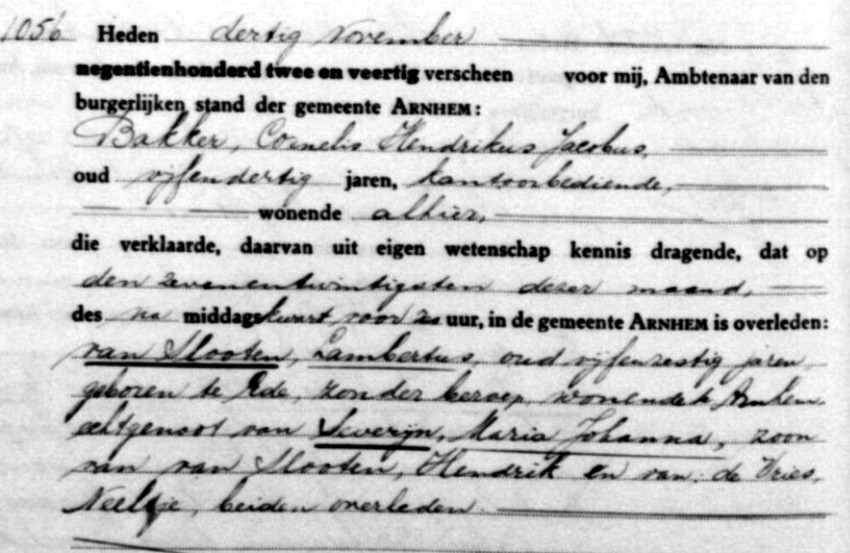 1056 Heden dertig November
negentienhonderd twee en veertig verscheen voor mij, Ambtenaar van den
burgerlijken stand der gemeente ARNHEM:
Bakker, Cornelis Hendrikus Jacobus,
oud vijfendertig jaren, kantoorbediende,
wonende alhier,
die verklaarde, daarvan uit eigen wetenschap kennis dragende, dat op
den zevenentwintigsten dezer maand,
des na middags kwart voor uur, in de gemeente ARNHEM is overleden:
van Slooten, Lambertus, oud vijfenzestig jaren,
geboren te Ede, zonder beroep, wonende te Arnhem
echtgenoot van Severijn, Maria Johanna, zoon
van van Slooten, Hendrik en van: de Vries,
Neeltje, beiden overleden.